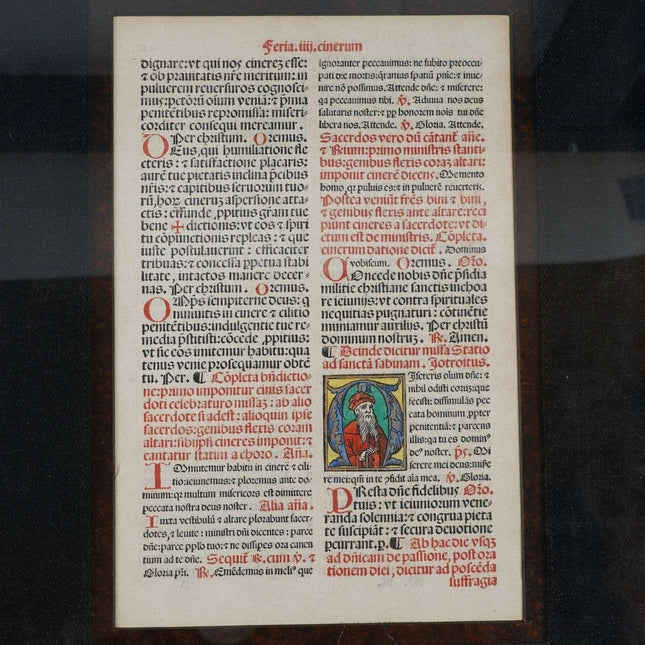 Feria.iiij.cinerum
dignare: vt qui nos cineres esse:
⁊ ob prauitatis nr̄e meritum: in
puluerem reuersuros cognosci-
mus: petōꝝ oīum veniā: ⁊ p̄mia
penitētibus repromissa: miseri-
corditer consequi mereamur.
Per christum. Oremus.
Deus, qui humiliatione fle
cteris: ⁊ satisfactione placaris:
aurē tue pietatis inclina p̄cibus
nr̄is: ⁊ capitibus seruorum tuo-
rū, hoꝝ cinerū aspersione atta-
ctis: effunde ꝓpitius gr̄am tue
bene ✠ dictionis: vt eos ⁊ spiri
tu cōpunctionis repleas: ⁊ que
iuste postulauerint: efficaciter
tribuas: ⁊ concessa ꝑpetua stabi
litate, intactos manere decer-
nas. Per christum. Oremus.
Omnp̄s sempiterne deus: q
niniuitis in cinere ⁊ cilitio
penitētibus: indulgentie tue re-
media p̄stitisti: cōcede ꝓpitius:
vt sic eos imitemur habitu: qua
tenus venie prosequamur obtē
tu. Per. ¶ Cōpleta bn̄dictio-
ne: primo imponitur cinis sacer
doti celebraturo missaꝫ: ab alio
sacerdote si adest: alioquin ipse
sacerdos: genibus flexis coram
altari: sibiipsi cineres imponit: ⁊
cantatur statim a choro. Aña.
Immutemur habitu in cinere ⁊ cili-
tio: ieiunemus: ⁊ ploremus ante do-
minum: qꝛ multum misericors est dimittere
peccata nostra deus noster. Alia aña.
Iuxta vestibulū ⁊ altare plorabunt sacer-
dotes, ⁊ leuite: ministri dn̄i dicentes: parce
dn̄e: parce pplo tuo: ⁊ ne dissipes ora canen
tium ad te dn̄e. Sequit̃ ℟. cum ℣. ⁊
Gloria pr̄i. ℟. Emēdemus in meliꝰ que
ignoranter peccauimus: ne subito preoccu-
pati die mortis: q̄ramus spatiū pn̄ie: ⁊ inue-
nire nō possimus. Attende dn̄e: ⁊ miserere:
qa peccauimus tibi. ℣. Adiuua nos deus
salutaris noster: ⁊ ꝓp̄ honorem nois tui dn̄e
libera nos. Attende. ℣. Gloria. Attende.
Sacerdos vero dū cātant̃ añe.
⁊ Rium: primo ministris stanti-
bus: genibus flexis coraꝫ altari:
imponit cinerē dicens. Memento
homo, qꝛ puluis es: ⁊ in puluerē reuerteris.
Postea veniūt frēs bini ⁊ bini,
⁊ genibus flexis ante altare: reci
piunt cineres a sacerdote: vt di-
ctum est de ministris. Cōpleta.
cinerum datione dicit̃. Dominus
vobiscum. Oremus. Oro.
Concede nobis dn̄e p̄sidia
militie christiane sanctis inchoa
re ieiunijs: vt contra spirituales
nequitias pugnaturi: cōtinētie
muniamur auxilijs. Per christū
dominum nostruꝫ. ℟. Amen.
¶ Deinde dicitur missa Statio
ad sanctā sabinam. Introitus.
Misereris oīum dn̄e: ⁊
nihil odisti eoruꝫ: que
fecisti: dissimulās pec
cata hominum ꝓpter
penitentiā: ⁊ parcens
illis: qa tu es dominꝰ
deꝰ noster. ps̄. Mi
serere mei deus: mise
re mei: qm̄ in te ꝯfidit aīa mea. ℣. Gloria.
Presta dn̄e fidelibus Oro.
tuis: vt ieiuniorum vene-
randa solennia: ⁊ congrua pieta
te suscipiāt: ⁊ secura deuotione
ꝑcurrant. p. ¶ Ab hac die vsqꝫ
ad dn̄icam de passione, post ora
tionem diei, dicitur ad poscēda
suffragia